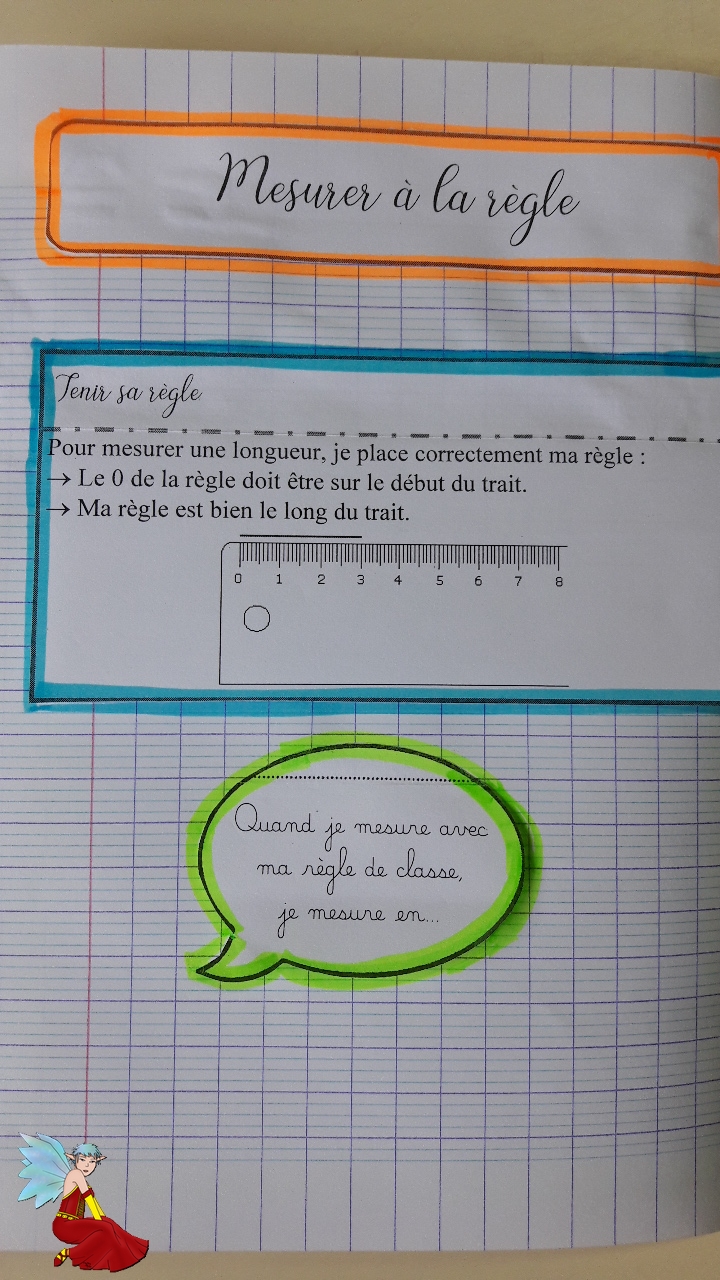 Mesurer à la règle
Tenir sa règle
Pour mesurer une longueur, je place correctement ma règle :
→ Le 0 de la règle doit être sur le début du trait.
→ Ma règle est bien le long du trait.
0 1 2 3 4 5 6 7 8
Quand je mesure avec
ma règle de classe,
je mesure en...